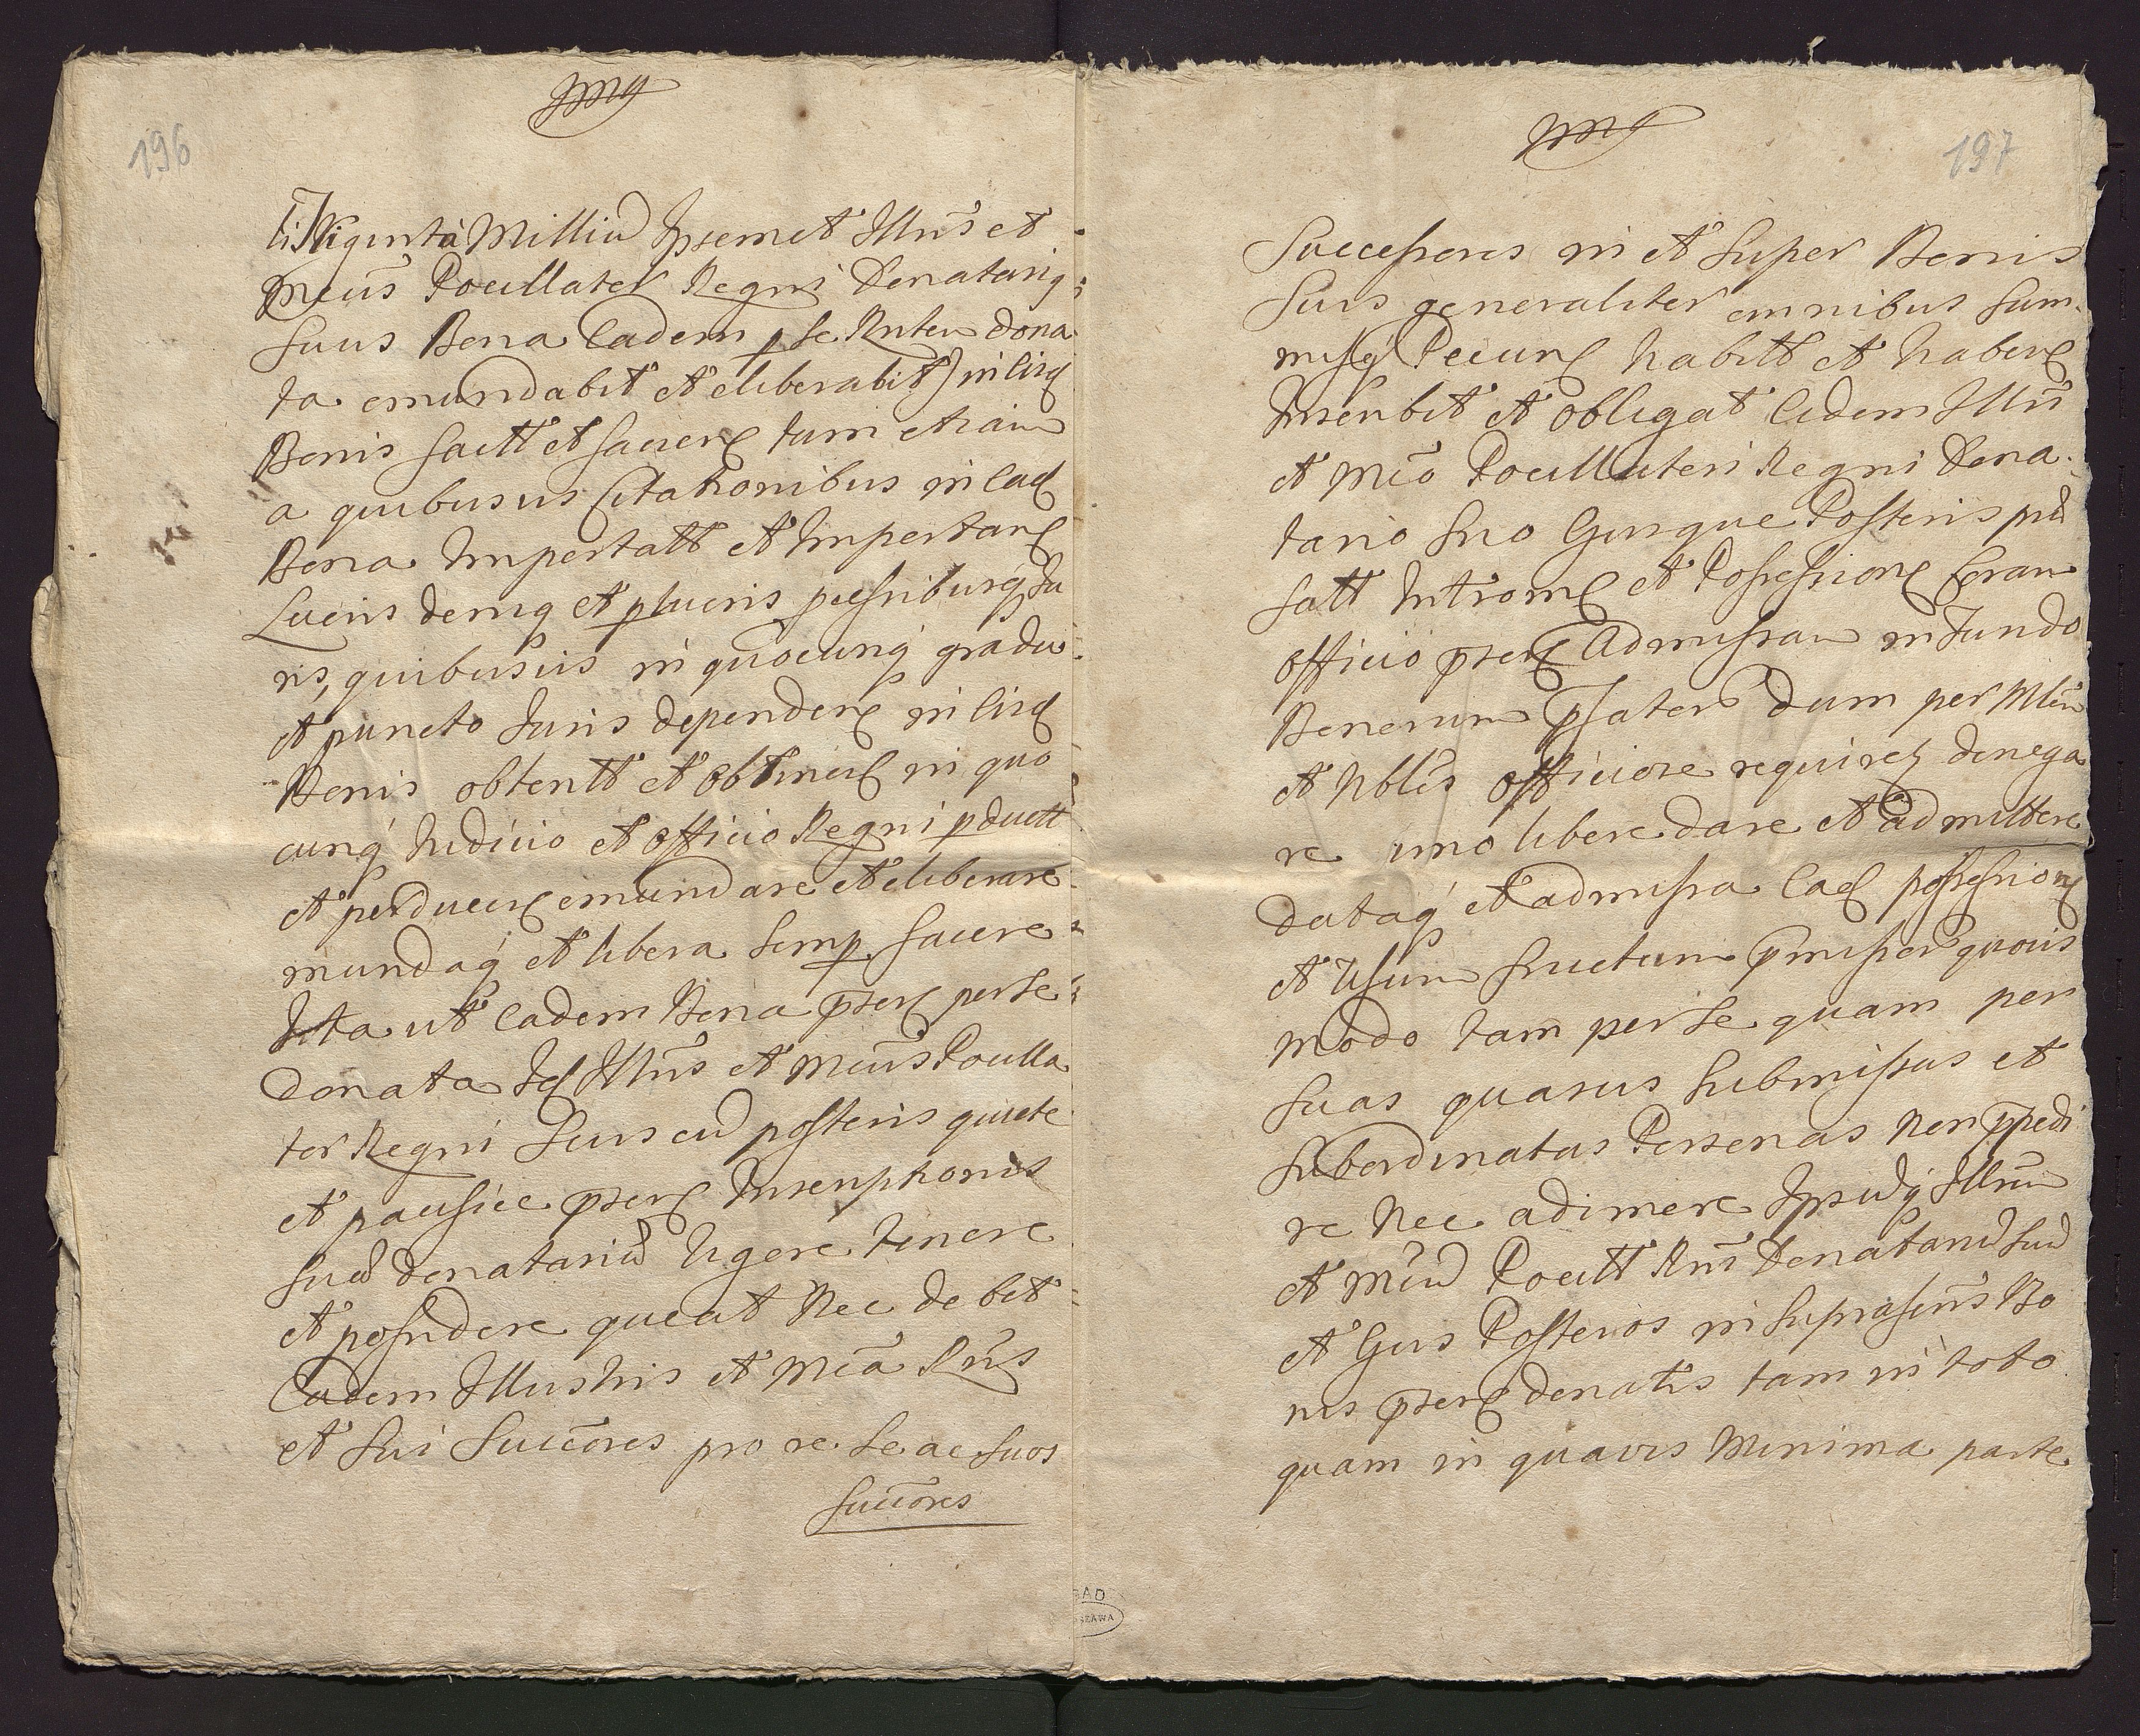 196
Viginta Milliu Ipsemet Illris et
Mcus Pocillator Regni Donatariq
suus Bona Eadem p se Rnten dona
ta emundabit et eliberabit) in iisd
Bonis factt et facien tum etiam
a quibusvis Citationibus in Ead
Bona Importatt et Importan
Lucris deniq et plucris possribusq Ju
ris, quibusvis in quocunq gradu
et puncto Juris dependen in iisd
Bonis obtentt et obtinen in quo
cunq Judicio et officio Regni pductt
et perducen emundare et eliberare
mundaq et libera semp facere
Ita ut Eadem Bona psen per se
Donata Id Illris et Mcus Pocilla
tor Regni Suis cu posteris quiete
et pacifice psen Inscriptionis
sua donatariu vigore tenere
et possidere queat Nec debet
Eadem Illustris et Mca Rns
et Sui Succores pro se ac suos
Succores
197
Successores in et Super Bonis
Suis generaliter omnibus sum
misq Pecun habitt et haben
Inscribit et obligat Eidem Illri
et Mco Pocillatori Regni Dona
tario suo Eiusque Posteris prd
fatt Introm et Possession Coram
officio psen Admissam in Fundo
Bonorum pfator dum per Mlem
et Nblis officiose requiret denega
re imo libere dare et admittere
dataq et admissa Ead possession
et Usum fructum pmissor quovis
modo tam per se quam per
suas quasvis submissas et
subordinatas Personas Non ppedi
re Nec adimere Ipsumq Illrem
et Mcu Pocitt Rni Donatariu suu
et Eius Posteros in suprascris Bo
nis psen donatis tam in toto
quam in quavis Minima parte